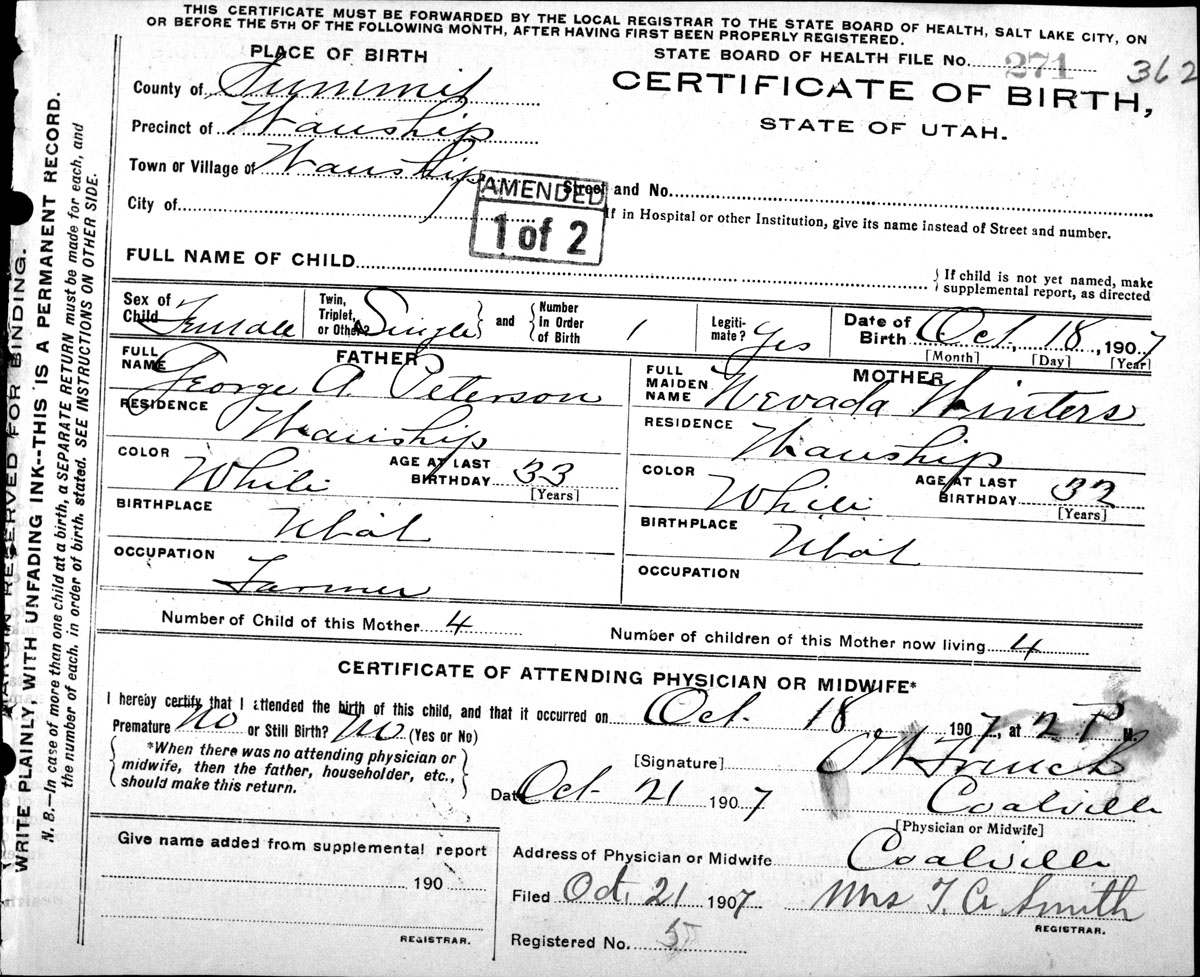 THIS CERTIFICATE MUST BE FORWARDED BY THE LOCAL REGISTRAR TO THE STATE BOARD OF HEALTH, SALT LAKE CITY, ON
OR BEFORE THE 5TH OF THE FOLLOWING MONTH, AFTER HAVING FIRST BEEN PROPERLY REGISTERED.
PLACE OF BIRTH
STATE BOARD OF HEALTH FILE No. 271 362
County of Summit
CERTIFICATE OF BIRTH,
STATE OF UTAH.
Precinct of Wanship
Town or Village of Wanship
AMENDED
1 of 2
Street and No.
City of
If in Hospital or other Institution, give its name instead of Street and number.
FULL NAME OF CHILD
If child is not yet named, make
supplemental report, as directed
Sex of Child Female
Twin, Triplet, or Other? Single
and Number in Order of Birth 1
Legitimate? Yes
Date of Birth Oct. 18, 1907
[Month] [Day] [Year]
FATHER
FULL NAME George A. Peterson
RESIDENCE Wanship
COLOR White
AGE AT LAST BIRTHDAY 33
[Years]
BIRTHPLACE Utah
OCCUPATION Farmer
MOTHER
FULL MAIDEN NAME Nevada Winters
RESIDENCE Wanship
COLOR White
AGE AT LAST BIRTHDAY 32
[Years]
BIRTHPLACE Utah
OCCUPATION
Number of Child of this Mother 4
Number of children of this Mother now living 4
CERTIFICATE OF ATTENDING PHYSICIAN OR MIDWIFE*
I hereby certify that I attended the birth of this child, and that it occurred on Oct. 18 1907, at 2 P M.
Premature No or Still Birth? No (Yes or No)
*When there was no attending physician or
midwife, then the father, householder, etc.,
should make this return.
[Signature]
Date Oct 21 1907
Coalville
[Physician or Midwife]
Give name added from supplemental report
190
REGISTRAR.
Address of Physician or Midwife Coalville
Filed Oct. 21 1907 Mrs T. A Smith
REGISTRAR.
Registered No.
MARGIN RESERVED FOR BINDING.
WRITE PLAINLY, WITH UNFADING INK--THIS IS A PERMANENT RECORD.
N. B.—In case of more than one child at a birth, a SEPARATE RETURN must be made for each, and
the number of each, in order of birth, stated. SEE INSTRUCTIONS ON OTHER SIDE.